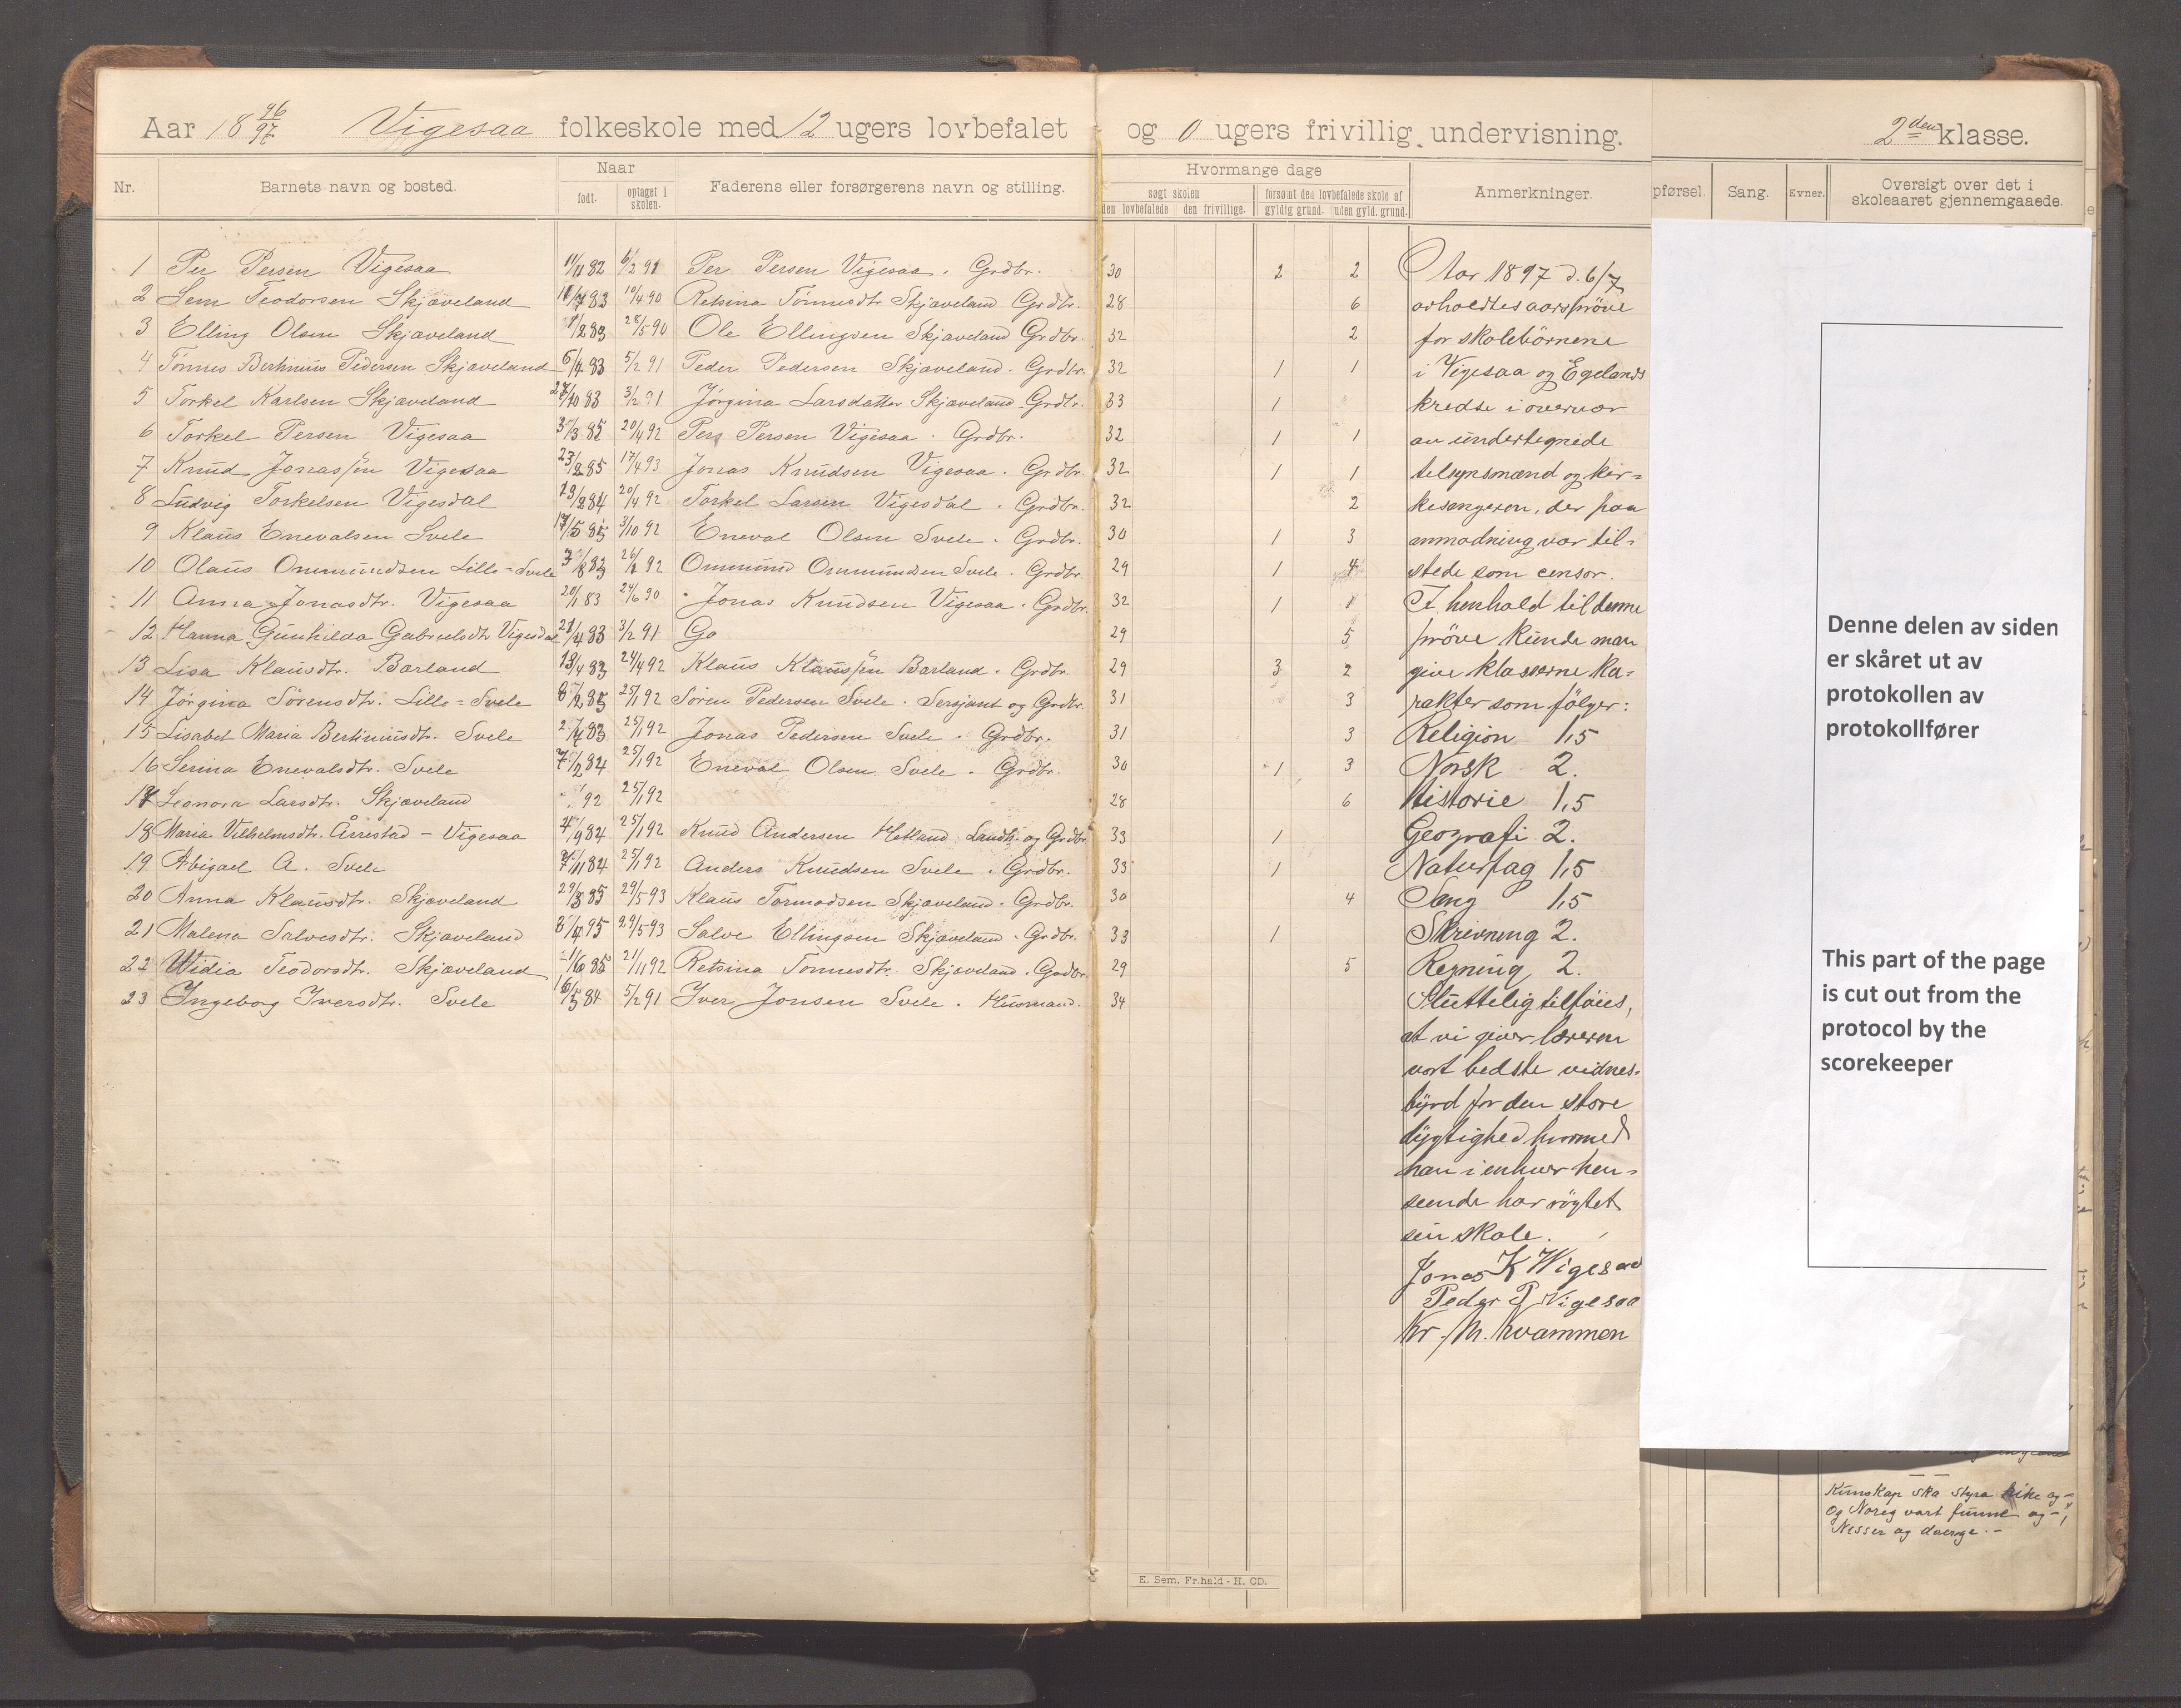 Aar 18 96/97 Vigesaa folkeskole med 12 ugers lovbefalet og 0 ugers frivillig undervisning. 2den klasse.
Nr. Barnets navn og bosted. Naar født. optaget i skolen. Faderens eller forsørgerens navn og stilling. Hvormange dage søgt skolen den lovbefalede den frivillige. forsømt den lovbefalede skole af gyldig grund. uden gyld. grund. Anmerkninger. pførsel. Sang. Evner. Oversigt over det i skoleaaret gjennemgaaede.
1 Per Persen Vigesaa 11/11 82 6/2 91 Per Persen Vigesaa. Grdbr. 30 2 2
2 Sem Teodorsen Skjæveland 10/4 90 Retsina Tönnesdtr Skjæveland Grdbr. 28 6
3 Elling Olsen Skjæveland 28/5 90 Ole Ellingsen Skjæveland Grdbr. 32 2
4 Tönnes Bertinius Pedersen Skjæveland 5/2 91 Peder Pedersen Skjæveland. Grdbr. 32 1 1
5 Torkel Karlsen Skjæveland 3/2 91 Jørgina Larsdatter Skjæveland Grdbr. 33 1
6 Torkel Persen Vigesaa 20/4 92 Per Persen Vigesaa. Grdbr. 32 1 1
7 Knud Jonassen Vigesaa 17/4 93 Jonas Knudsen Vigesaa. Grdbr. 32 1 1
8 Ludvig Torkelsen Vigesdal 20/4 92 Torkel Larsen Vigesdal. Grdbr. 32 2
9 Klaus Enevalsen Svele 3/10 92 Eneval Olsen Svele. Grdbr. 30 1 3
10 Olaus Ommundsen Lille-Svele 92 Ommund Ommundsen Svele. Grdbr. 29 1 4
11 Anna Jonasdtr. Vigesaa 20/1 83 24/6 90 Jonas Knudsen Vigesaa. Grdbr. 32 1 1
12 Hanna Gunhilda Gabrielsdtr Vigesdal 3/2 91 Go 29 5
13 Lisa Klausdtr. Barland 24/4 92 Klaus Klaussen Barland. Grdbr. 29 3 2
14 Jørgina Sörensdtr. Lille-Svele 25/1 92 Sören Pedersen Svele. Sersjant og Grdbr. 31 3
15 Lisabet Maria Bertiniusdtr. Svele 25/1 92 Jonas Pedersen Svele. Grdbr. 31 3
16 Serina Enevalsdtr. Svele 25/1 92 Eneval Olsen Svele. Grdbr. 30 1 3
17 Leonora Larsdtr. Skjæveland 92 25/1 92 28 6
18 Maria Vilhelmsdtr. Årrestad - Vigesaa 25/1 92 Knud Andersen Hetland. Landh. og Grdbr. 33 1
19 Abigael A. Svele 25/1 92 Anders Knudsen Svele. Grdbr. 33 1
20 Anna Klausdtr. Skjæveland 29/5 93 Klaus Tormodsen Skjæveland. Grdbr. 30 4
21 Malena Salvesdtr. Skjæveland 29/5 93 Salve Ellingsen Skjæveland. Grdbr. 33 1
22 Widia Teodorsdtr. Skjæveland 21/11 92 Retsina Tönnesdtr. Skjæveland. Grdbr. 29 5
23 Ingeborg Iversdtr. Svele 5/2 91 Iver Jonsen Svele. Husmand. 34
Aar 1897 d. 6/7
avholdtes aarspröve
for skolebörnene
i Vigesaa og Egelands
kredse i overvær
av undertegnede
tilsynsmænd og kir-
kesangeren, der paa
anmodning var til-
stede som censor.
I henhold til denne
pröve kunde man
give klasserne ka-
rakter som fölger:
Religion 1,5
Norsk 2.
Historie 1,5
Geografi 2.
Naturfag 1,5
Sang 1,5
Skrivning 2.
Regning 2.
Sluttelig tilföies,
at vi giver læreren
vort bedste vidnes-
byrd for den store
dygtighed hvormed
han i enhver hen-
seende har rögtet
sin skole.
Jonas K Wigesaa
Peder P Vigesaa
Kr. M. Kvammen
E. Sem, Fr.hald - H. CD.
Denne delen av siden
er skåret ut av
protokollen av
protokollfører
This part of the page
is cut out from the
protocol by the
scorekeeper
Kunskap ska styra rike og -
Og Noreg vart funne og -,
Nisser og dverge. -